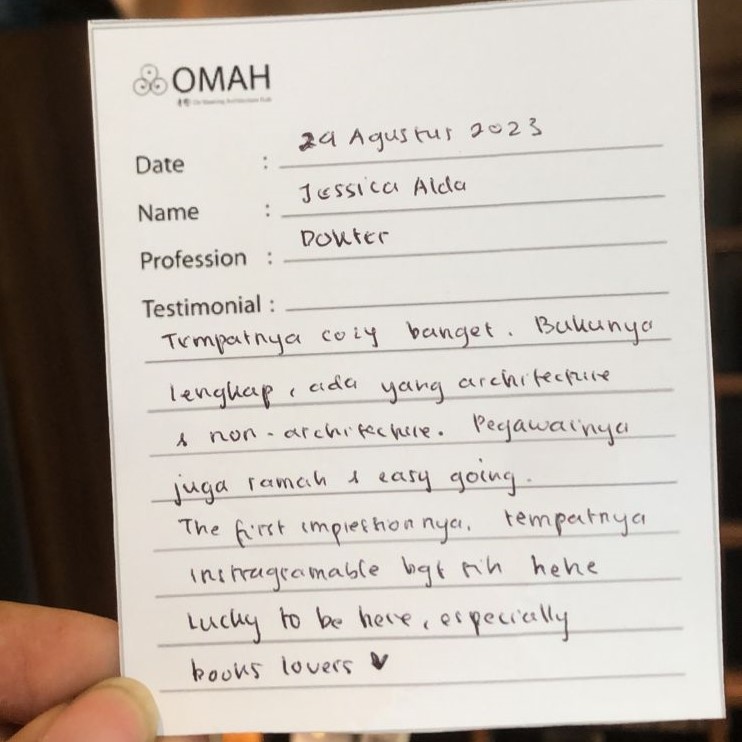 OMAH
Date : 29 Agustus 2023
Name : Jessica Alda
Profession : Dokter
Testimonial :
Tempatnya cozy banget. Bukunya
lengkap, ada yang architecture
& non-architecture. Pegawainya
juga ramah & easy going.
The first impression nya, tempatnya
instragramable bgt sih hehe
Lucky to be here, especially
books lovers